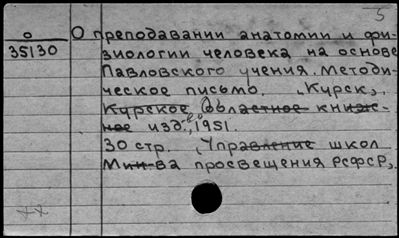 5
О О преподавании анатомии и фи-
35130 зиологии человека на основе
Павловского учения. Методи-
ческое письмо. "Курск",
Курское областное книж-
ное изд-во, 1951.
30 стр. (Управление школ
Мин-ва просвещения РСФСР).